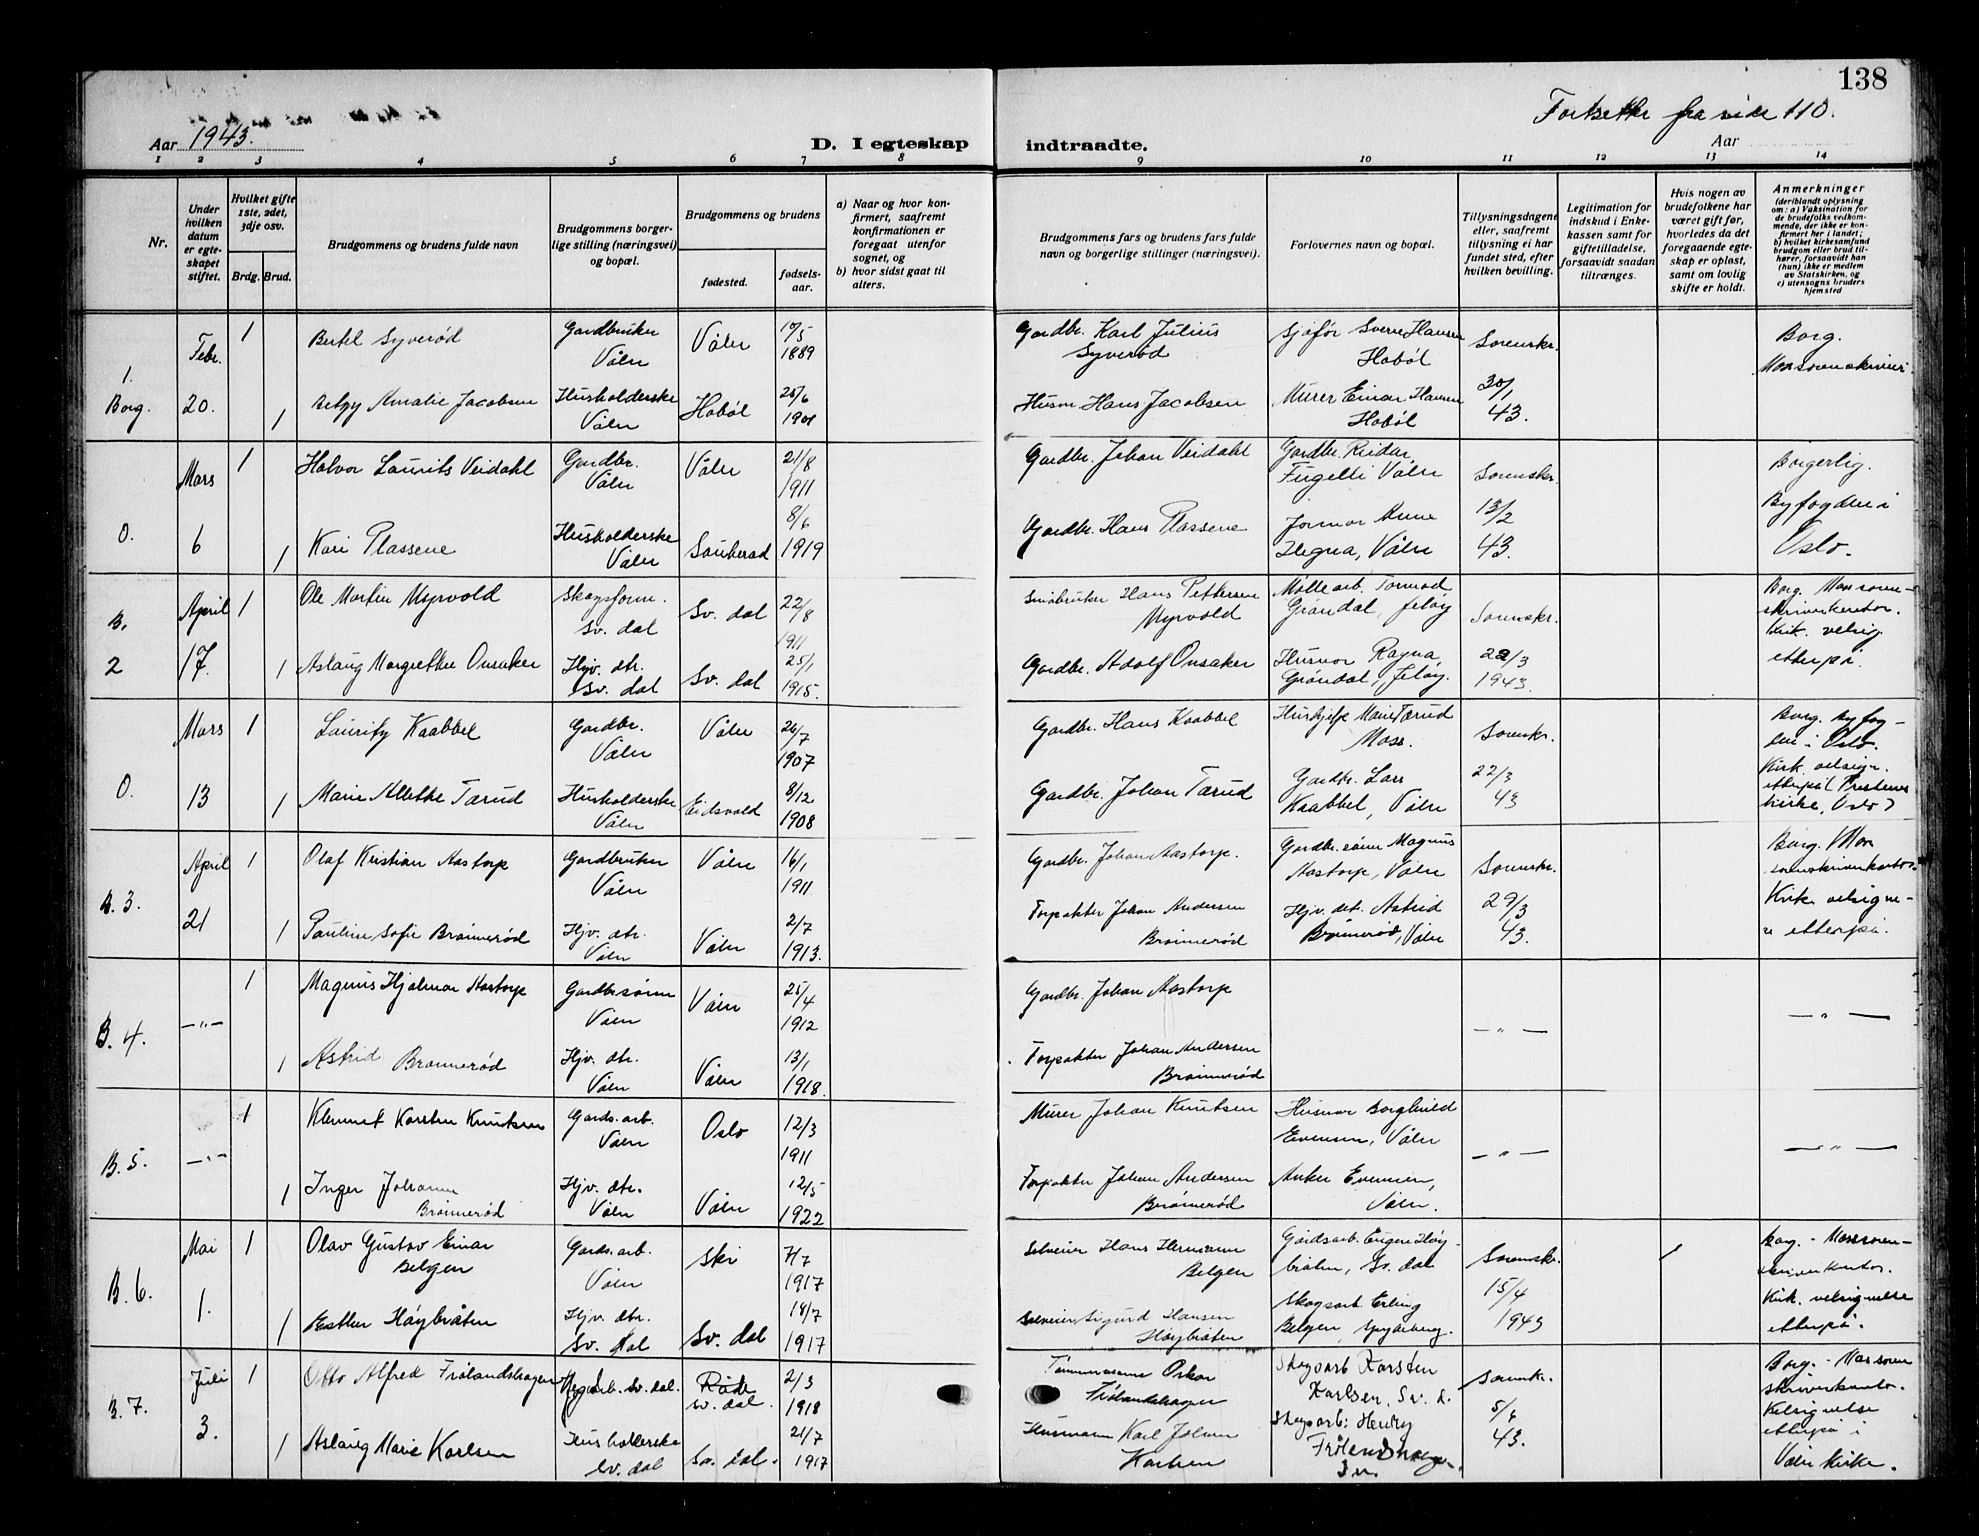 138
Fortsettes fra side 110.
Aar 1943.
D. I egteskap
indtraadte.
Aar
1 2 3 4 5 6 7 8 9 10 11 12 13 14
Nr.
Under hvilken datum er egteskapet stiftet.
Hvilket gifte 1ste, 2det, 3dje osv.
Brdg. Brud.
Brudgommens og brudens fulde navn
Brudgommens borgerlige stilling (næringsvei) og bopæl.
Brudgommens og brudens
fødested.
fødselsaar.
a) Naar og hvor konfirmert, saafremt konfirmationen er foregaat utenfor sognet, og
b) hvor sidst gaat til alters.
Brudgommens fars og brudens fars fulde navn og borgerlige stillinger (næringsvei).
Forlovernes navn og bopæl.
Tillysningsdagene eller, saafremt tillysning ei har fundet sted, efter hvilken bevilling.
Legitimation for indskud i Enkekassen samt for giftetilladelse, forsaavidt saadan tiltrænges.
Hvis nogen av brudefolkene har været gift før, hvorledes da det foregaaende egteskap er opløst, samt om lovlig skifte er holdt.
Anmerkninger
(deriblandt oplysning om: a) Vaksination for de brudefolks vedkommende, der ikke er konfirmert her i landet; b) hvilket kirkesamfund brudgom eller brud tilhører, forsaavidt han (hun) ikke er medlem av Statskirken, og c) utensogns bruders hjemsted
1. Borg. Febr. 20.
1 Bertel Syverød Gardbruker Våler Våler 10/5 1889 Gardbr. Karl Julius Syverød Sjåfør Sverre Hansen Hobøl Sorenskr. 30/1 43. Borg. Moss sorenskriveri
1 Betzy Amalie Jacobsen Husholderske Våler Hobøl 25/6 1901 Husm. Hans Jacobsen Murer Einar Hansen Hobøl
0. Mars 6
1 Halvor Laurits Veidahl Gardbr. Våler Våler 21/8 1911 Gardbr. Johan Veidahl Gardbr. Reidar Fugelli Våler Sorenskr. 13/2 43. Borgerlig. Byfogden i Oslo.
1 Kari Plassene Husholderske Våler Sauherad 8/6 1919 Gardbr. Hans Plassene Jormor Anne Hegna, Våler
B. 2 April 17.
1 Ole Martin Myrvold Skogsform. Sv. dal Sv. dal 22/8 1911 Småbruker Hans Pettersen Myrvold Møllearb. Tormod Grøndal, Jeløy Sorenskr. 22/3 1943. Borg. Moss sorenskriverkontor. Kirk. velsig. etterpå.
1 Aslaug Margrethe Onsaker Hjv. dtr. Sv. dal Sv. dal 25/1 1915. Gardbr. Adolf Onsaker Husmor Ragna Grøndal, Jeløy.
0. Mars 13
1 Lauritz Kaabbel Gardbr. Våler Våler 26/7 1907 Gardbr. Hans Kaabbel Hushjelp Marie Tærud Moss. Sorenskr. 22/3 43 Borg. byfogden i Oslo. Kirk. velsign. etterpå (Prestenes kirke, Oslo)
1 Marie Alette Tærud Husholderske Våler Eidsvold 8/12 1908 Gardbr. Johan Tærud Gardbr. Lars Kaabbel, Våler
B. 3. April 21
1 Olaf Kristian Aastorp Gardbruker Våler Våler 16/1 1911 Gardbr. Johan Aastorp. Gardbr. sønn Magnus Aastorp, Våler Sorenskr. 29/3 43. Borg. Moss sorenskriverkontor. Kirk. velsignelse etterpå.
1 Pauline Sofie Brønnerød Hjv. dtr. Våler Våler 2/7 1913. Forpakter Johan Andersen Brønnerød Hjv. dtr. Astrid Brønnerød, Våler
B. 4. —"—
1 Magnus Hjalmar Aastorp Gardbr.sønn Våler Våler 25/4 1912 Gardbr. Johan Aastorp —"— —"—
1 Astrid Brønnerød Hjv. dtr. Våler Våler 13/1 1918. Forpakter Johan Andersen Brønnerød
B. 5. —"—
1 Klemmet Karsten Knutsen Gards.arb. Våler Oslo 12/3 1911 Murer Johan Knutsen Husmor Borghild Evensen, Våler —"— —"—
1 Inger Johanne Brønnerød Hjv. dtr. Våler Våler 12/5 1922 Forpakter Johan Andersen Brønnerød Anker Evensen, Våler.
B. 6. Mai 1.
1 Olav Gustav Einar Belgen Gards.arb. Våler Ski 7/7 1917 Selveier Hans Hermann Belgen Gårdsarb. Eugen Høybråten, Sv. dal Sorenskr. 15/4 1943 Borg. - Moss sorenskriverkontor. Kirk. velsignelse etterpå.
1 Esther Høybråten Hjv. dtr. Sv. dal Sv. dal 18/7 1917 Selveier Sigurd Hansen Høybråten Skogsarb. Erling Belgen, Spydeberg.
B. 7. Juli 3.
1 Otto Alfred Frølandshagen Sv. dal. Råde Sv. dal. 2/3 1918 Tømmermann Oskar Frølandshagen Skogsarb Karsten Karlsen, Sv. d. Sorenskr. 5/6 43. Borg. - Moss sorenskriverkontor. Velsignelse etterpå i Våler kirke.
1 Aslaug Marie Karlsen Husholderske Sv. dal Sv. dal. 21/7 1917 Husmann Karl Johan Karlsen Skogsarb. Henry Frølandshagen,